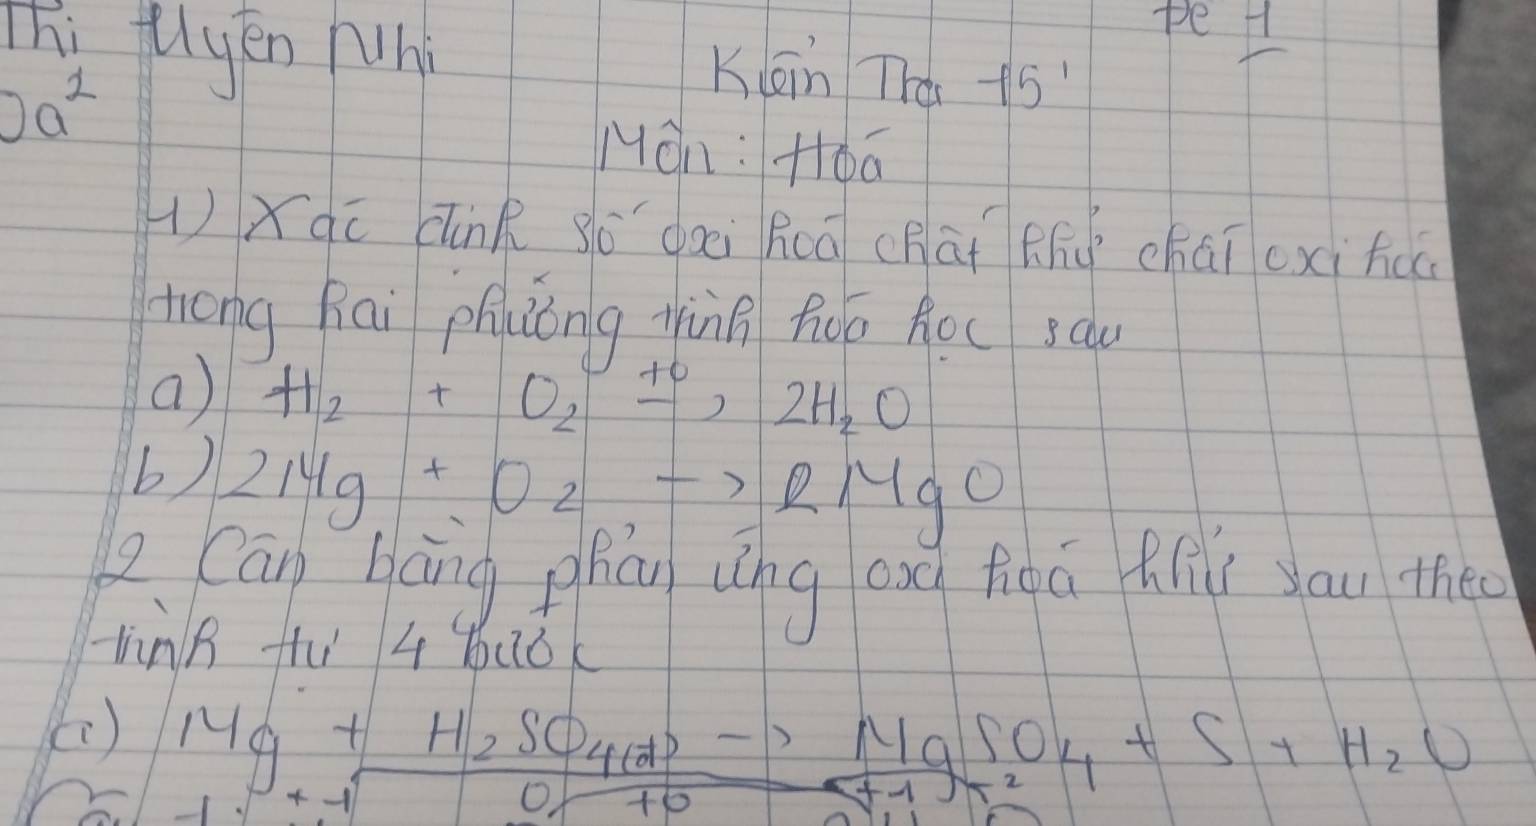 Thi Uyên Nhi
Đề 1
Kiểm Tra 15'
Môn: Hoá
1) Xác định số oxi hoá chất khử chất oxi hoá
trong hai phương trình hoá học sau
a) H₂ + O₂ →(t⁰) 2H₂O
b) 2Mg + O₂ → 2MgO
2 Cân bằng phản ứng oxi hoá khử sau theo
trình tự 4 bước
a) Mg + H₂SO₄(đ) → MgSO₄ + S + H₂O